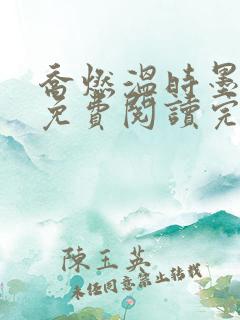 喬燃溫時墨
免費閱讀完
陳玉英
未经同意禁止转载